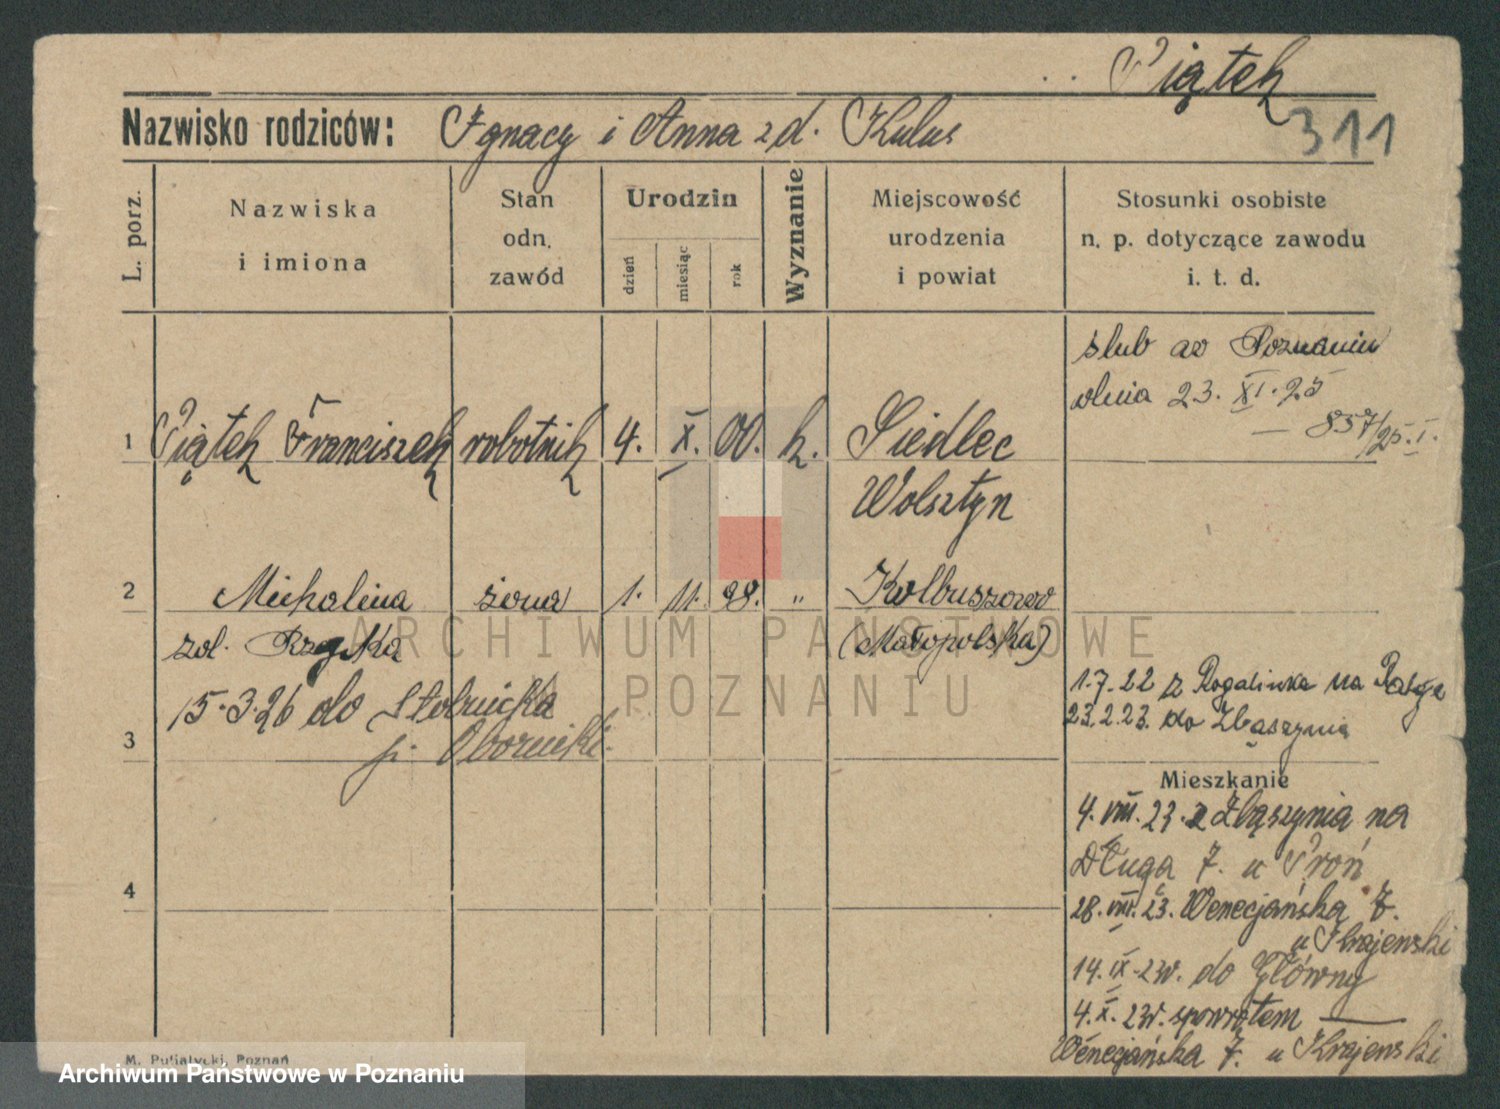 Piątek
Nazwisko rodziców: Ignacy i Anna z d. Kulus
311
L. porz.
Nazwiska
i imiona
Stan
odn.
zawód
Urodzin
dzień
miesiąc
rok
Wyznanie
Miejscowość
urodzenia
i powiat
Stosunki osobiste
n. p. dotyczące zawodu
i. t. d.
ślub w Poznaniu
dnia 23. XI. 25
— 857/25. I.
1 Piątek Franciszek robotnik 4. X. 00. k. Siedlec
Wolsztyn
2 Michalina żona 1. 11. 98. " Kolbuszowo
zol. (Małopolska)
15.3.26 do Stobnicka
p. Obornicki.
1.7.22 z Rogalinka na
23.2.23. do Zbąszynia
3
Mieszkanie
4. VIII. 23. z Zbąszynia na
Długa 7. u Proń
4
28. VIII. 23. Wenecjańska 7.
u Krajewski
14. IX. 23r. do Główny
4. X. 23r. spowrotem —
Wenecjańska 7. u Krajewski
M. Putiatycki, Poznań
ARCHIWUM PAŃSTWOWE
POZNANIU
Archiwum Państwowe w Poznaniu